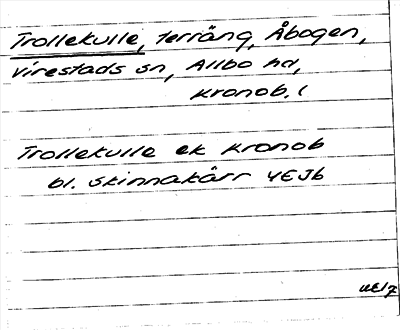 Trollekulle, terräng, Åbogen,
Virestads sn, Allbo hd,
Kronob. l
Trollekulle ek Kronob
bl. Skinnakärr 4E Jb